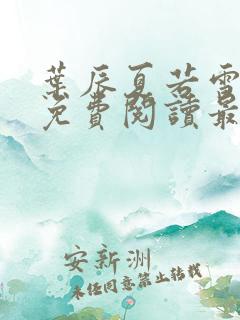 葉辰夏若雪
免費閱讀最
安新洲
未經同意禁止轉載